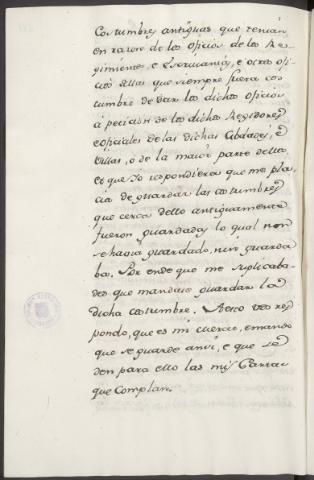 Costumbres antiguas que tenian
en razon de los oficios de los Re-
gimientos, e Escrivanias, e otros ofi-
cios dellas que siempre fuera cos-
tumbre de dar los dichos oficios
á peticion de los dichos Regidores
e oficiales de las dichas Cibdades, é
Villas, o de la maior parte dellos,
et que Yo respondiera que me pla-
cia de guardar las costumbres
que cerca dello antiguamente
fueron guardadas lo qual non
se havia guardado, nin guarda-
ba. Por ende que me suplicaba-
des que mandase guardar la
dicha costumbre. A esto vos res-
pondo, que es mi merced, e mando
que se guarde ansi, e que se
den para ello las mis Cartas
que Complan.